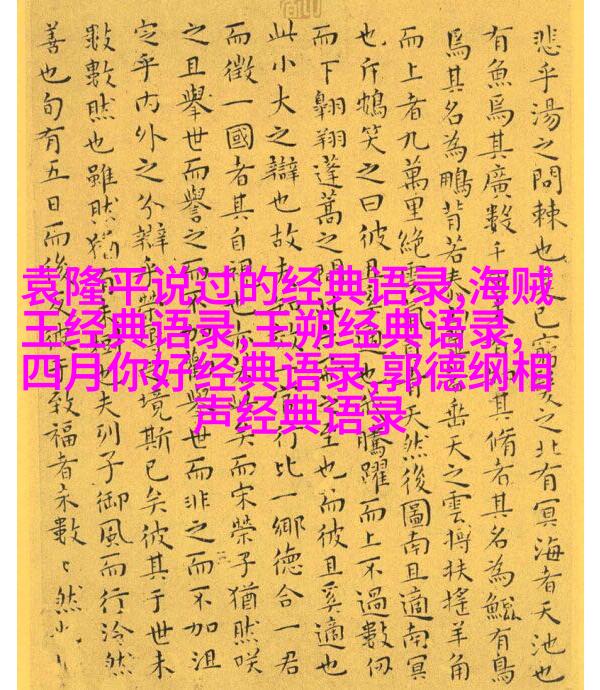 袁隆平说过的经典语录,海贼
王经典语录,王朔经典语录,
四月你好经典语录,郭德纲相
声经典语录
悲乎湯之問棘也已之北有冥海者天池也
有魚焉其廣數千其脩者其名為鯤有鳥
焉其名為鵬背若垂天之雲摶扶搖羊角
而上者九萬里絕雲天然後圖南且適南冥
也斥鴳笑之曰彼且適也騰躍而上不過數仞
而下翱翔蓬蒿之間之至也而彼且奚適也
此小大之辯也故夫行比一鄉德合一君
而徵一國者其自視也矣而宋榮子猶然咲
之且舉世而譽之而不舉世而非之而不加沮
定乎內外之分辯乎榮境斯已矣彼其于世未
數數然也雖然猶也夫列子御風而行泠然
善也旬有五日而後反彼於致福者未數〻然